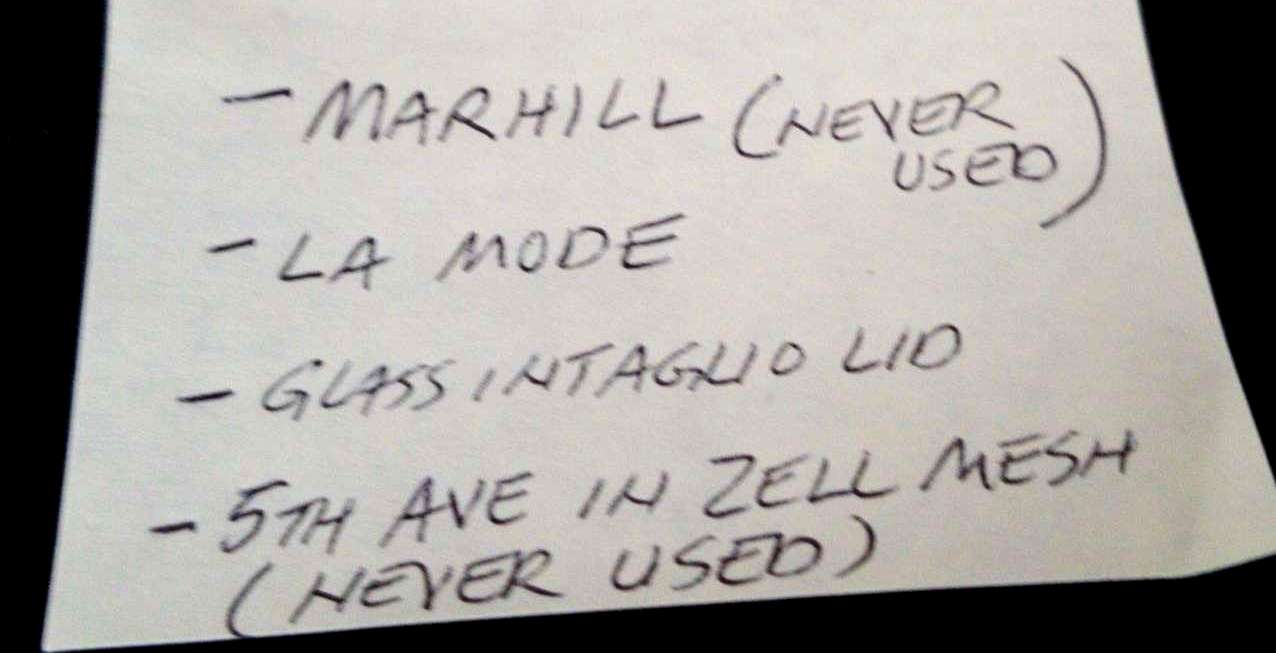 - MARHILL (NEVER
USED)
- LA MODE
- GLASS INTAGLIO LID
- 5TH AVE IN ZELL MESH
(NEVER USED)